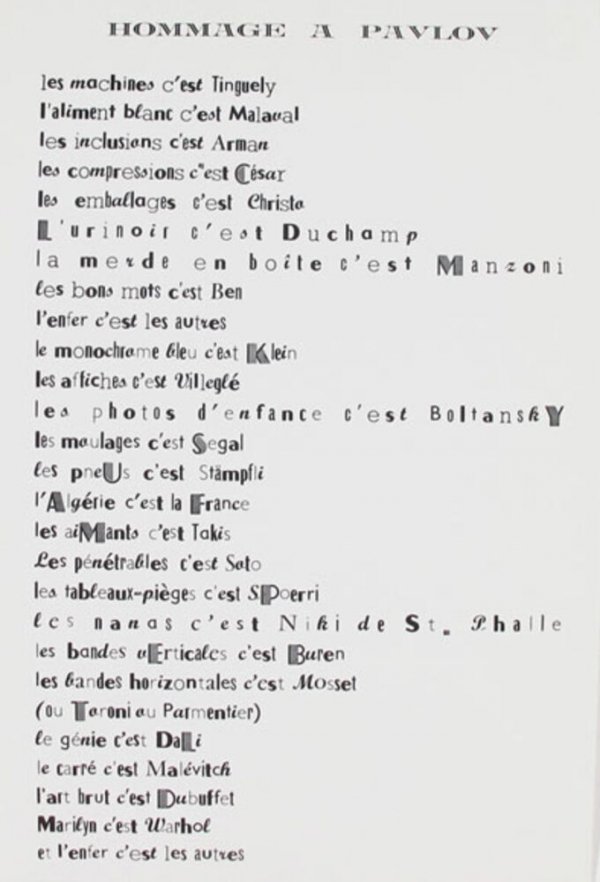 HOMMAGE A PAVLOV
les machines c'est Tinguely
l'aliment blanc c'est Malaval
les inclusions c'est Arman
les compressions c'est César
les emballages c'est Christo
L'urinoir c'est Duchamp
la merde en boîte c'est Manzoni
les bons mots c'est Ben
l'enfer c'est les autres
le monochrome bleu c'est Klein
les affiches c'est Villeglé
les photos d'enfance c'est BoltanskY
les moulages c'est Segal
les pneUs c'est Stämpfli
l'Algérie c'est la France
les aiMants c'est Takis
Les pénétrables c'est Soto
les tableaux-pièges c'est SPoerri
les nanas c'est Niki de St. Phalle
les bandes vErticales c'est Buren
les bandes horizontales c'est Mosset
(ou Toroni ou Parmentier)
le génie c'est DaLi
le carré c'est Malévitch
l'art brut c'est Dubuffet
Marilyn c'est Warhol
et l'enfer c'est les autres